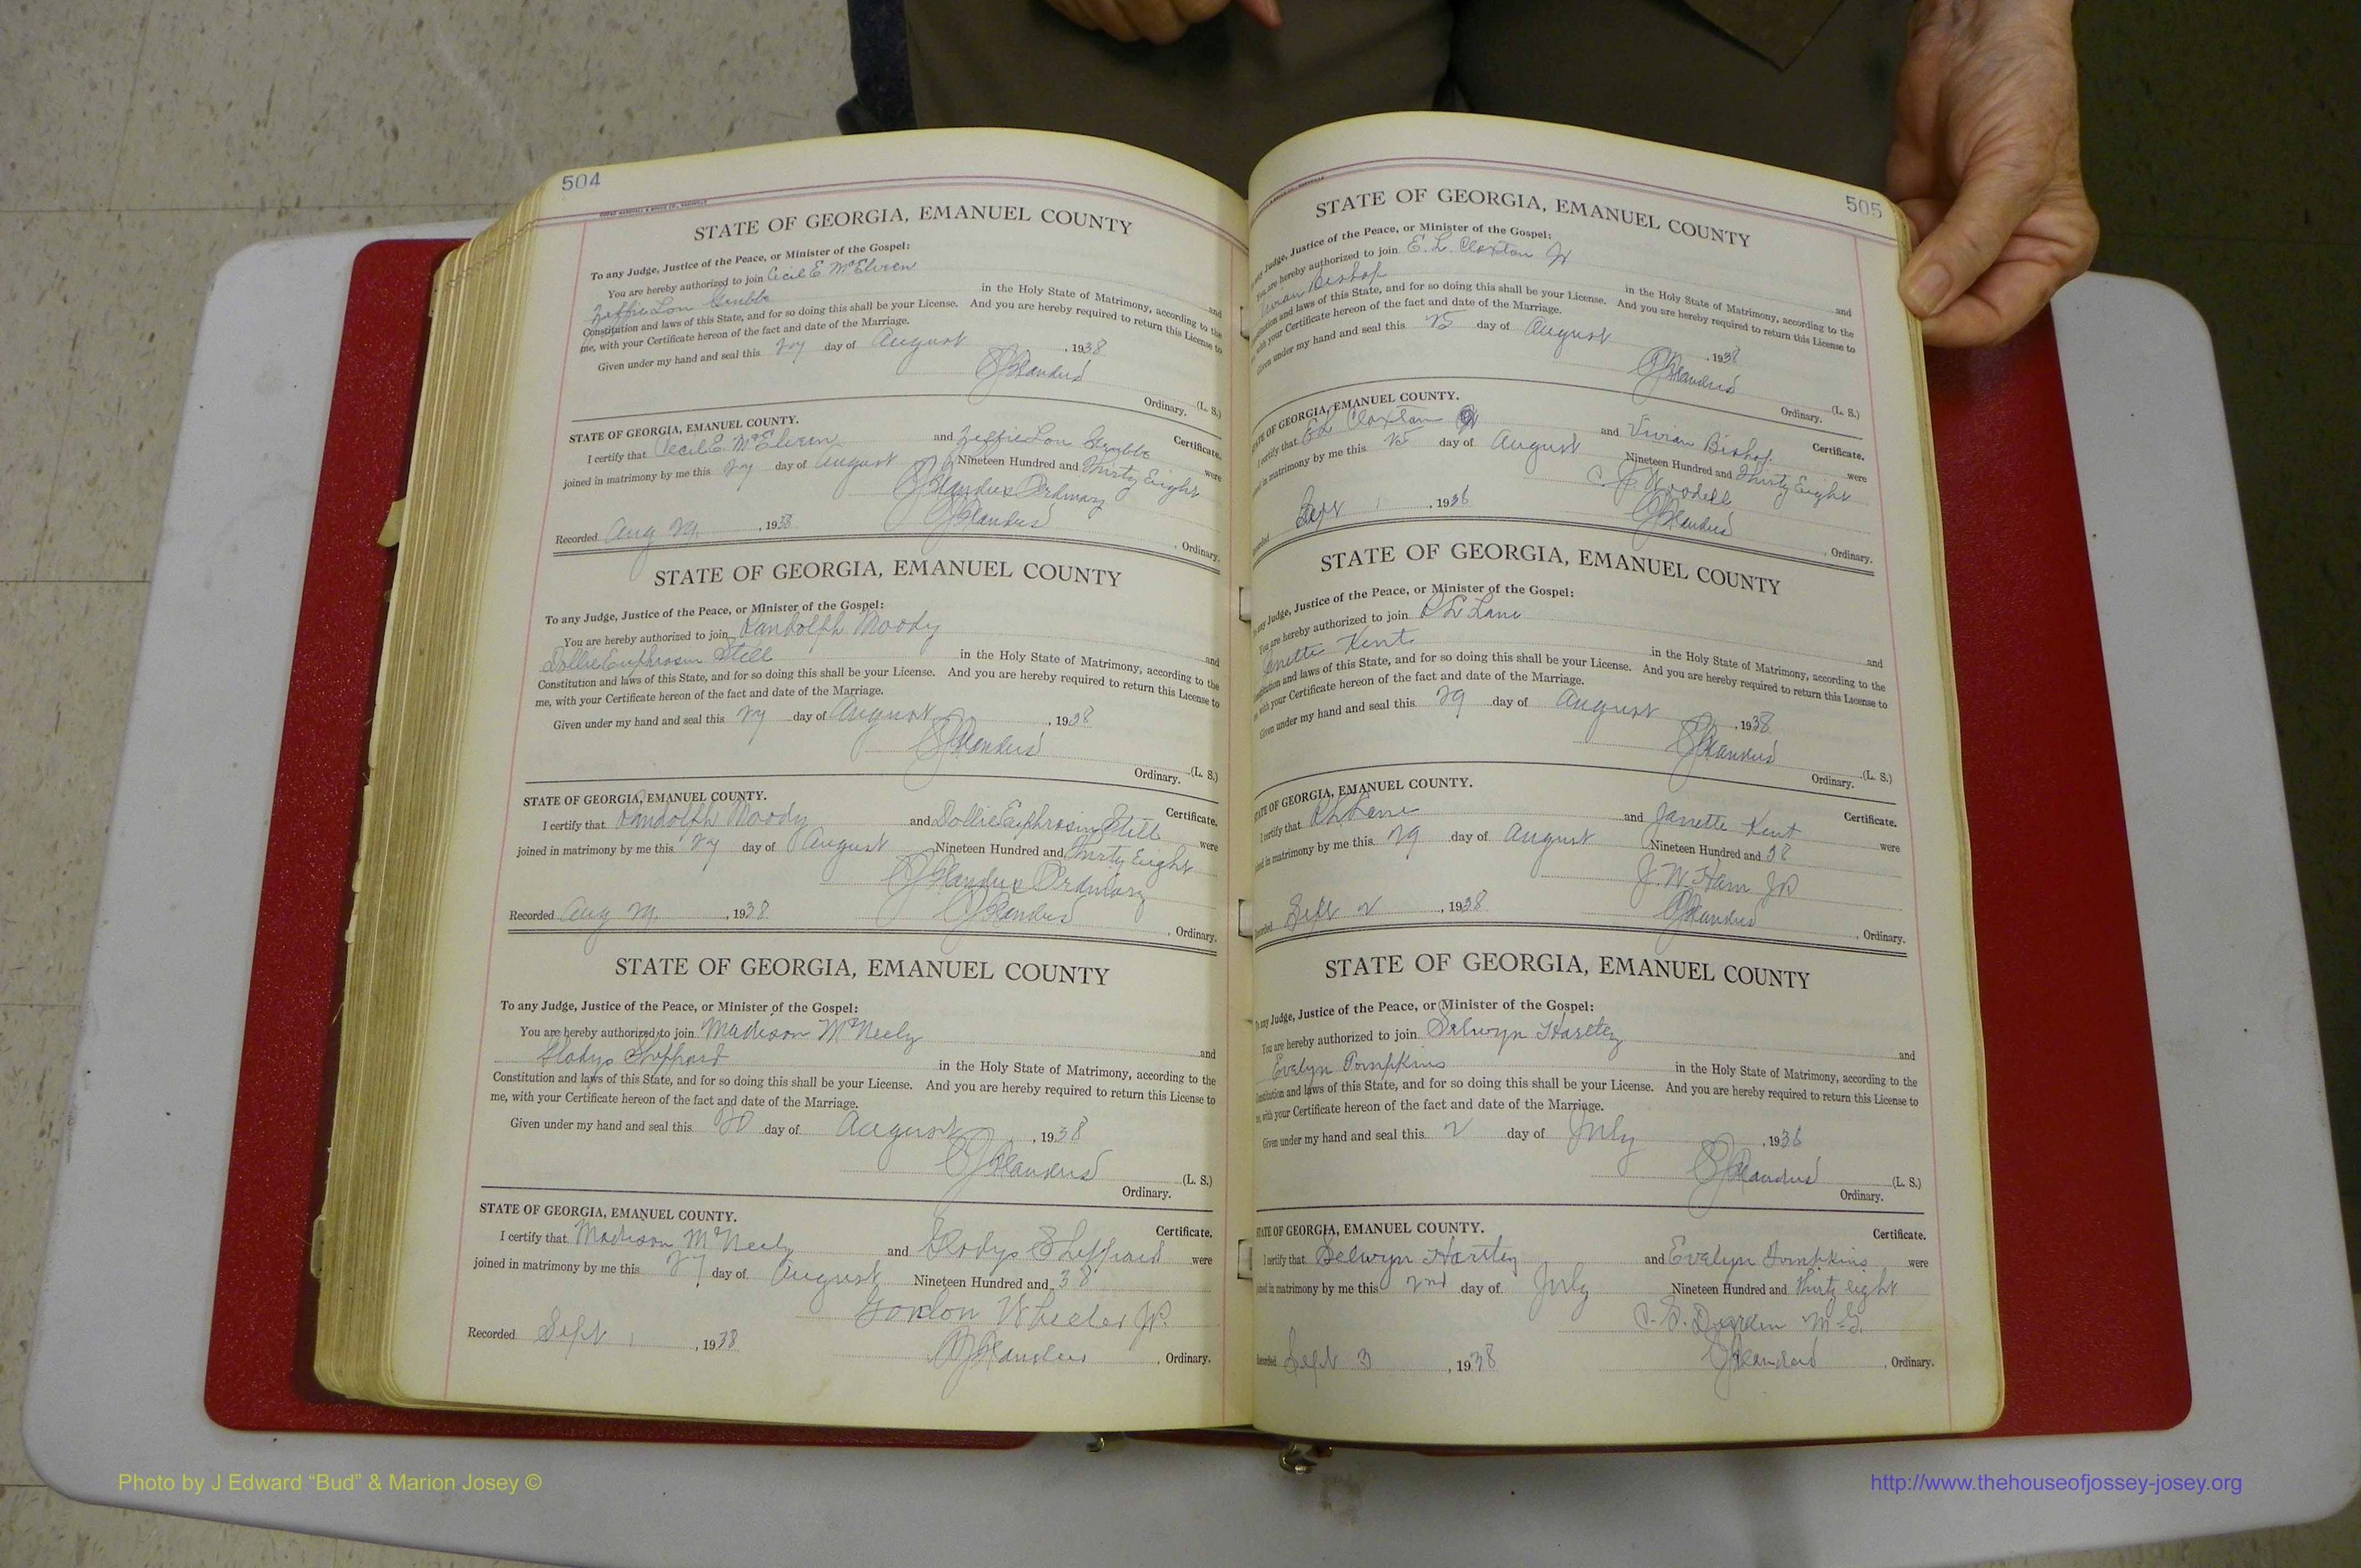 504
STATE OF GEORGIA, EMANUEL COUNTY
To any Judge, Justice of the Peace, or Minister of the Gospel:
You are hereby authorized to join Cecil E. McElveen and
Lou Grubbs in the Holy State of Matrimony, according to the
Constitution and laws of this State, and for so doing this shall be your License. And you are hereby required to return this License to
me, with your Certificate hereon of the fact and date of the Marriage.
Given under my hand and seal this 27 day of August, 1938
(L. S.)
Ordinary.
STATE OF GEORGIA, EMANUEL COUNTY. Certificate.
I certify that Cecil E. McElveen and Lou Grubbs were
joined in matrimony by me this 27 day of August Nineteen Hundred and Thirty Eight
Ordinary
Recorded Aug 29, 1938 , Ordinary.
STATE OF GEORGIA, EMANUEL COUNTY
To any Judge, Justice of the Peace, or Minister of the Gospel:
You are hereby authorized to join Randolph Moody and
Dollie Euphrasin Still in the Holy State of Matrimony, according to the
Constitution and laws of this State, and for so doing this shall be your License. And you are hereby required to return this License to
me, with your Certificate hereon of the fact and date of the Marriage.
Given under my hand and seal this 27 day of August, 1938
(L. S.)
Ordinary.
STATE OF GEORGIA, EMANUEL COUNTY. Certificate.
I certify that Randolph Moody and Dollie Euphrasin Still were
joined in matrimony by me this 27 day of August Nineteen Hundred and Thirty Eight
Ordinary
Recorded Aug 29, 1938 , Ordinary.
STATE OF GEORGIA, EMANUEL COUNTY
To any Judge, Justice of the Peace, or Minister of the Gospel:
You are hereby authorized to join Madison McNeely and
Gladys Sheppard in the Holy State of Matrimony, according to the
Constitution and laws of this State, and for so doing this shall be your License. And you are hereby required to return this License to
me, with your Certificate hereon of the fact and date of the Marriage.
Given under my hand and seal this 20 day of August, 1938
(L. S.)
Ordinary.
STATE OF GEORGIA, EMANUEL COUNTY. Certificate.
I certify that Madison McNeely and Gladys Sheppard were
joined in matrimony by me this 27 day of August Nineteen Hundred and 38
Gordon Wheeler JP.
Recorded Sept 1, 1938 , Ordinary.
505
STATE OF GEORGIA, EMANUEL COUNTY
any Judge, Justice of the Peace, or Minister of the Gospel:
You are hereby authorized to join E. L. Claxton Jr and
Vivian Bishop in the Holy State of Matrimony, according to the
and laws of this State, and for so doing this shall be your License. And you are hereby required to return this License to
with your Certificate hereon of the fact and date of the Marriage.
Given under my hand and seal this 25 day of August, 1938
(L. S.)
Ordinary.
STATE OF GEORGIA, EMANUEL COUNTY. Certificate.
I certify that E L Claxton Jr and Vivian Bishop were
in matrimony by me this 25 day of August Nineteen Hundred and Thirty Eight
Sept 1, 1938 , Ordinary.
STATE OF GEORGIA, EMANUEL COUNTY
any Judge, Justice of the Peace, or Minister of the Gospel:
You are hereby authorized to join R L Lane and
Kent in the Holy State of Matrimony, according to the
and laws of this State, and for so doing this shall be your License. And you are hereby required to return this License to
with your Certificate hereon of the fact and date of the Marriage.
Given under my hand and seal this 29 day of August, 1938
(L. S.)
Ordinary.
STATE OF GEORGIA, EMANUEL COUNTY. Certificate.
I certify that R L Lane and Janette Kent were
in matrimony by me this 29 day of August Nineteen Hundred and 38
J. W. Ham JP
Sept 2, 1938 , Ordinary.
STATE OF GEORGIA, EMANUEL COUNTY
any Judge, Justice of the Peace, or Minister of the Gospel:
You are hereby authorized to join Selwyn Hartley and
Evelyn Tompkins in the Holy State of Matrimony, according to the
and laws of this State, and for so doing this shall be your License. And you are hereby required to return this License to
with your Certificate hereon of the fact and date of the Marriage.
Given under my hand and seal this 2 day of July, 1938
(L. S.)
Ordinary.
STATE OF GEORGIA, EMANUEL COUNTY. Certificate.
I certify that Selwyn Hartley and Evelyn Tompkins were
in matrimony by me this 2nd day of July Nineteen Hundred and thirty eight
M. G.
Sept 3, 1938 , Ordinary.
Photo by J Edward “Bud” & Marion Josey ©
http://www.thehouseofjossey-josey.org